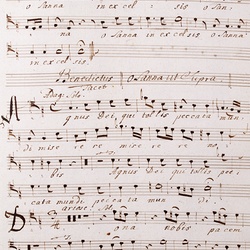 o Sanna in ex cel sis o San
na o Sanna in ex cel sis o Sanna
in ex cel sis
Benedictus | O Sanna ut Supra
Adagio
Agnus Dei qui tollis peccata mun
di mise re re mise re re no
bis Agnus Dei qui tollis pec
cata mundi peccata mun di
Dona nobis pacem